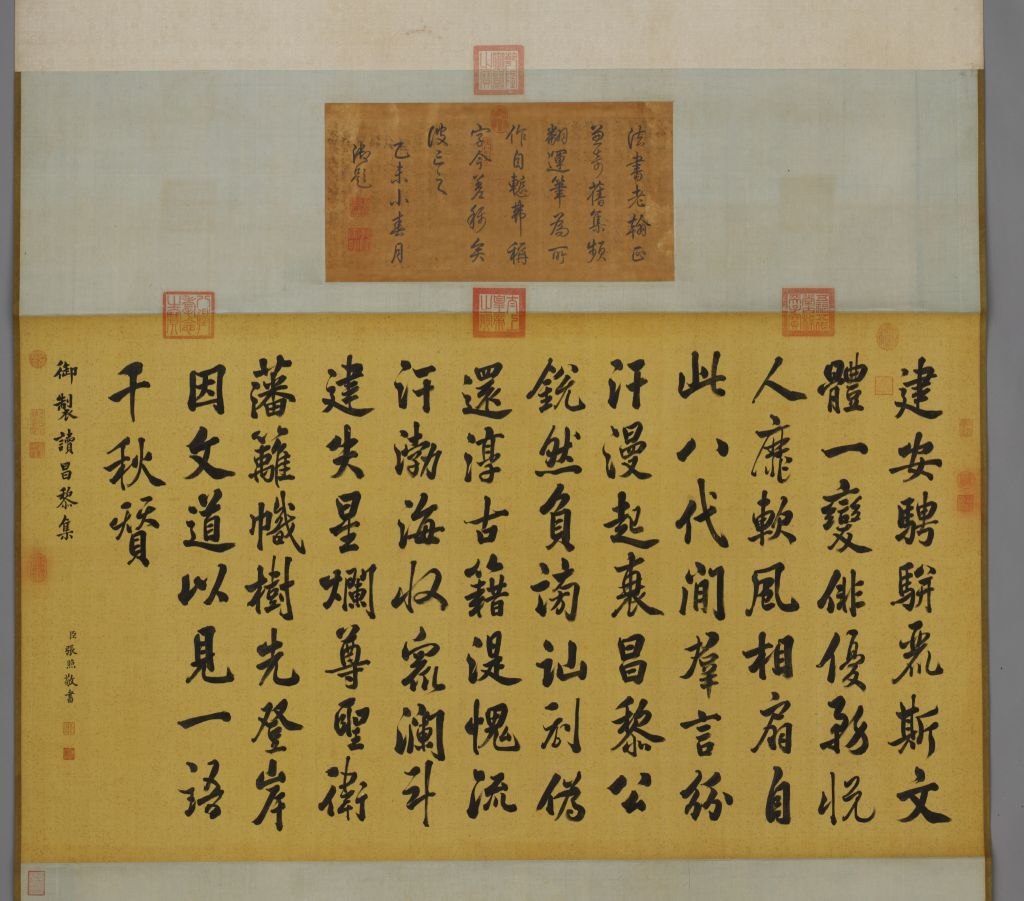 法書老翰正
舊集頻
翻運筆為所
作自慙弗稱
字今矣
乙未小春月
御題
建安騁駢麗斯文
體一變俳優務悅
人靡軟風相扇自
此八代間羣言紛
汗漫起衰昌黎公
銳然負謗訕剗偽
還淳古籍湜愧流
汗渤海收眾瀾斗
建失星爛尊聖衛
藩籬幟樹先登岸
因文道以見一語
千秋贊
御製讀昌黎集
臣張照敬書